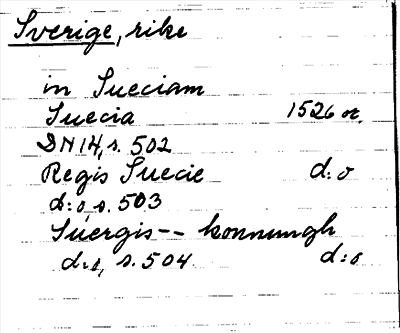 Sverige, rike
in Sueciam
Suecia 1526 or.
DN 14, s. 502
Regis Suecie d:o
d:o, s. 503
Suergis-- konnungh
d:o, s. 504 d:o